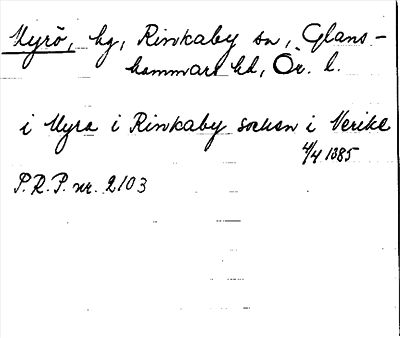 Myrö, hg, Rinkaby sn, Glans-
hammars hd, Ör. l.
i Myra i Rinkaby sockn i Nerike
4/4 1385
P.R.P. nr. 2103